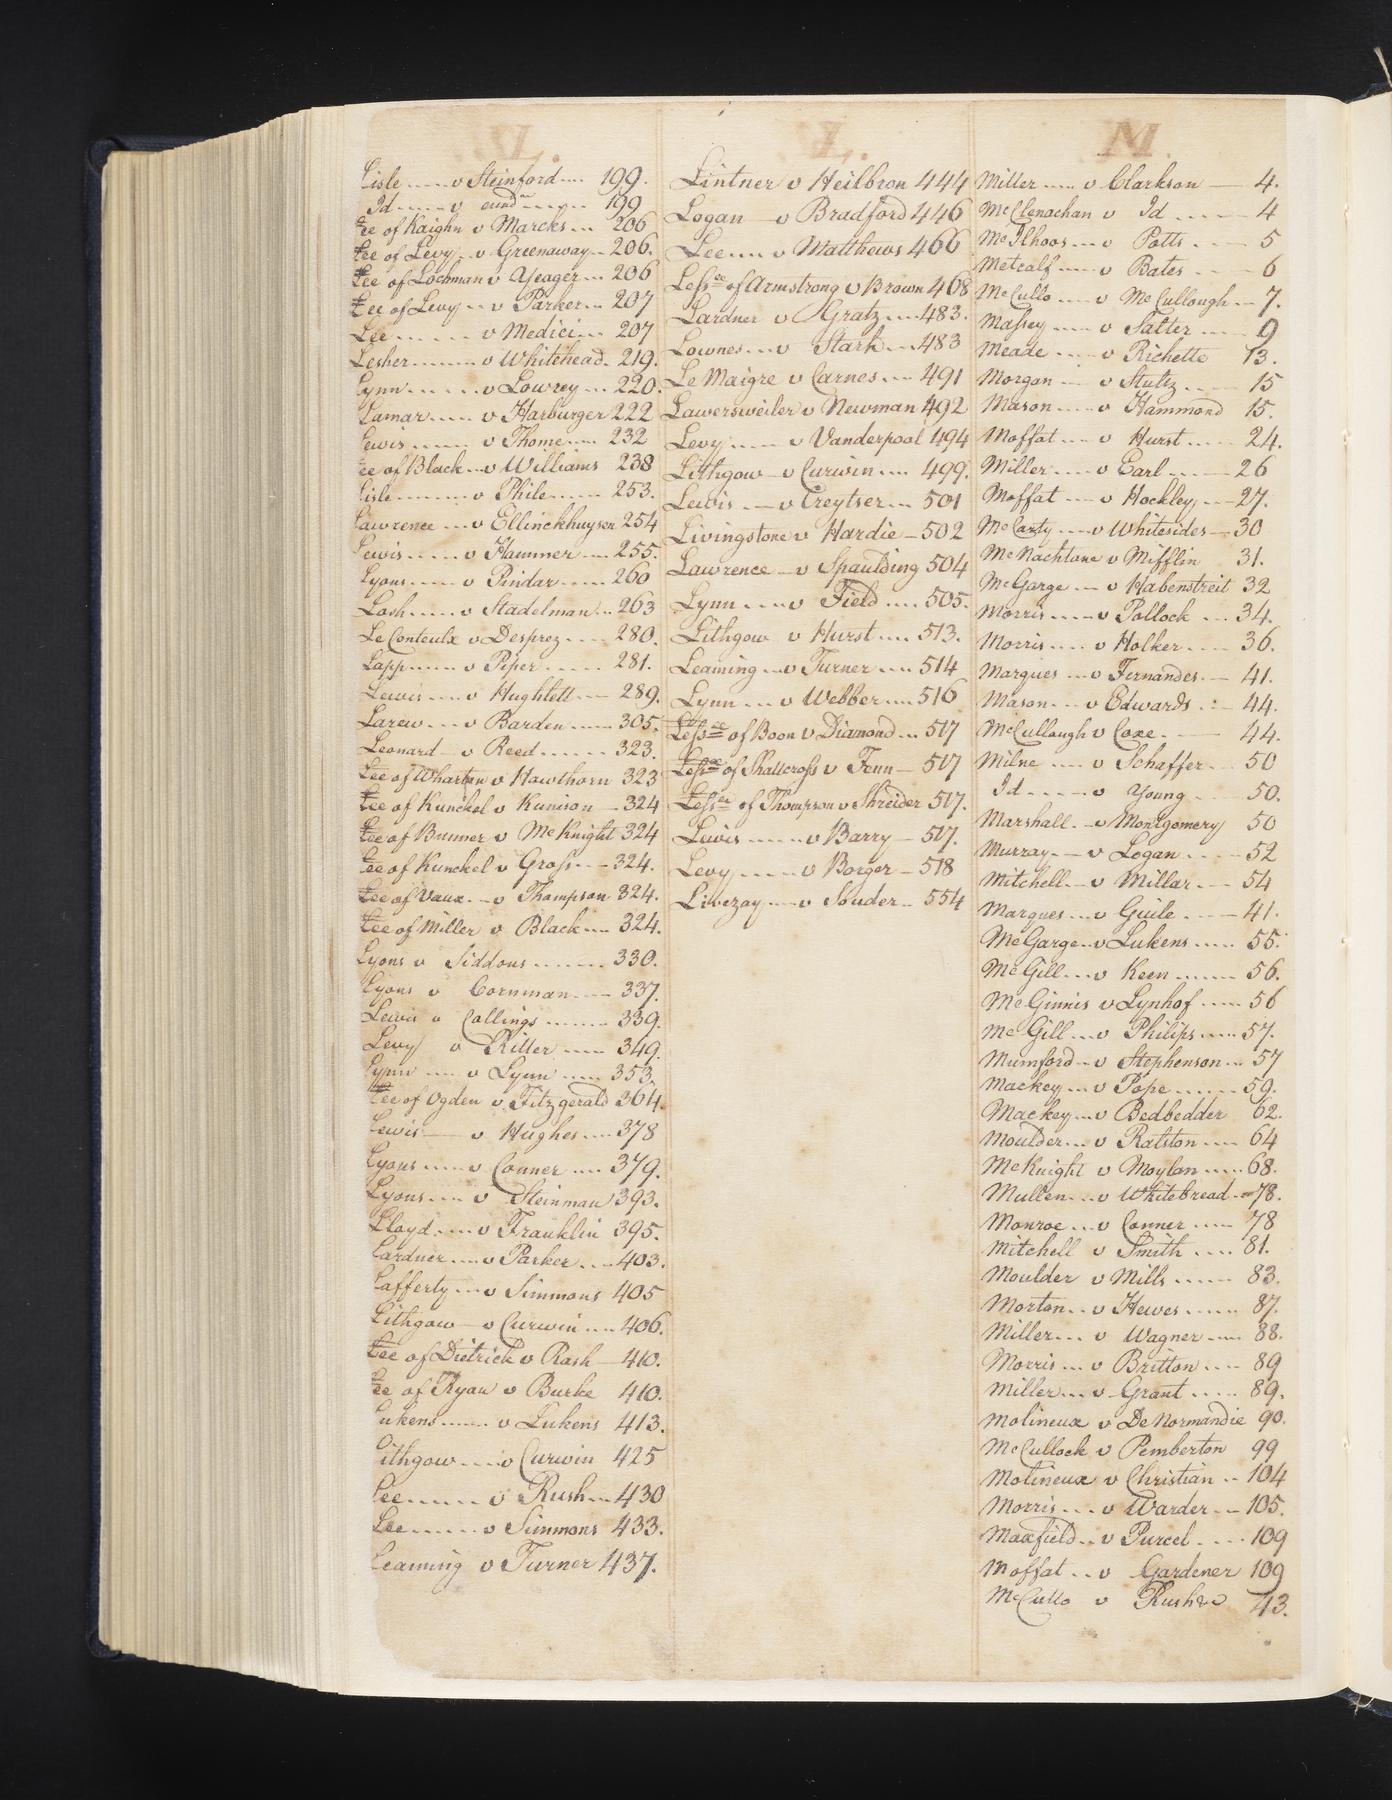 L.
Lisle v Steinford 199.
Id v eund^m 199
Lee of Kaighn v Marcks 206
Lee of Levy v Greenaway 206.
Lee of Lochman v Yeager 206
Lee of Levy v Parker 207
Lee v Medici 207
Lesher v Whitehead 219.
Lynn v Lowrey 220.
Lamar v Harburger 222
Lewis v Thome 232
Lee of Black v Williams 238
Lisle v Phile 253.
Lawrence v Ellinckhuysen 254
Lewis v Hammer 255.
Lyons v Pindar 260
Losh v Stadelman 263
Le Conteulx v Desprez 280.
Lapp v Piper 281.
Lewis v Hughlett 289.
Larew v Barden 305.
Leonard v Reed 323.
Lee of Wharton v Hawthorn 323
Lee of Kunckel v Kunion 324
Lee of Bunner v McKnight 324
Lee of Kunckel v Gross 324.
Lee of Vaux v Thompson 324.
Lee of Miller v Black 324.
Lyons v Siddons 330.
Lyons v Cornman 337.
Lewis v Collings 339.
Levy v Ritter 349.
Lynn v Lynn 353
Lee of Ogden v Fitzgerald 364.
Lewis v Hughes 378
Lyons v Conner 379.
Lyons v Steinman 393.
Lloyd v Franklin 395.
Lardner v Parker 403.
Lafferty v Simmons 405
Lithgow v Curwin 406.
Lee of Dietrick v Rash 410.
Lee of Ryan v Burke 410.
Lukens v Lukens 413.
Lithgow v Curwin 425
Lee v Rush 430
Lee v Simmons 433.
Leaming v Turner 437.
L.
Lintner v Heilbron 444
Logan v Bradford 446
Lee v Matthews 466
Less^ee of Armstrong v Brown 468
Lardner v Gratz 483.
Lownes v Stark 483
Le Maigre v Carnes 491
Lawersweiler v Newman 492
Levy v Vanderpool 494
Lithgow v Curwin 499.
Lewis v Creytser 501
Livingstone v Hardie 502
Lawrence v Spaulding 504
Lynn v Field 505.
Lithgow v Hurst 513.
Leaming v Turner 514
Lynn v Webber 516
Less^ee of Boon v Diamond 517
Less^ee of Shallcross v Fenn 517
Less^ee of Thompson v Shreider 517.
Lewis v Barry 517.
Levy v Borger 518
Livezay v Souder 554
M.
Miller v Clarkson 4.
McClenachan v Id 4
McIlhoos v Potts 5
Metcalf v Bates 6
McCullo v McCullough 7.
Massey v Tatter 9
Meade v Richette 13.
Morgan v Stultz 15
Mason v Hammond 15.
Moffat v Hurst 24.
Miller v Earl 26
Moffat v Hockley 27.
McCarty v Whitesides 30
McNachtane v Mifflin 31.
McGarge v Habenstreit 32
Morris v Pollock 34.
Morris v Holker 36.
Marques v Fernandes 41.
Mason v Edwards 44.
McCullough v Coxe 44.
Milne v Schaffer 50
Id v Young 50.
Marshall v Montgomery 50
Murray v Logan 52
Mitchell v Millar 54
Marques v Guile 41.
McGarge v Lukens 55.
McGill v Keen 56.
McGinnis v Lynhof 56
McGill v Philips 57.
Mumford v Stephenson 57
Mackey v Pope 59.
Mackey v Bedbedder 62.
Moulder v Ralston 64
McKnight v Moylan 68.
Mullen v Whitebread 78.
Monroe v Conner 78
Mitchell v Smith 81.
Moulder v Mills 83.
Morton v Hewes 87.
Miller v Wagner 88.
Morris v Britton 89
Miller v Grant 89.
Molineux v DeNormandie 90.
McCullock v Pemberton 99
Molineux v Christian 104
Morris v Warder 105.
Maxfield v Purcel 109
Moffat v Gardener 109
McCullo v 43.